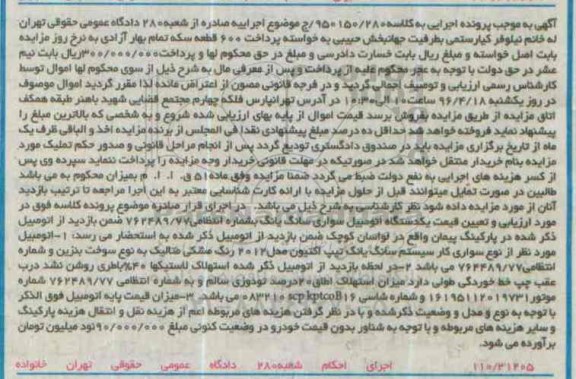 آگهی به موجب پرونده اجرایی به کلاسه ۹۵۰۱۵۰/۲۸۰/ج موضوع اجراییه صادره از شعبه ۲۸۰ دادگاه عمومی حقوقی تهران
له خانم نیلوفر کیارستمی بطرفیت جهانبخش حبیبی به خواسته پرداخت ۶۰۰ قطعه سکه تمام بهار آزادی به نرخ روز مزایده
بابت اصل خواسته و مبلغ ریال بابت خسارت دادرسی و مبلغ در حق محکوم لها و پرداخت ۳۰۰/۰۰۰/۰۰۰ ریال بابت نیم
عشر در حق دولت با توجه به عجز محکوم علیه از پرداخت و پس از معرفی مال به شرح ذیل از سوی محکوم لها اموال توسط
کارشناس رسمی ارزیابی و توصیف اجمالی گردید و در فرجه قانونی مصون از اعتراض مانده لذا مقرر گردید اموال موصوف
در روز یکشنبه ۹۶/۴/۱۸ ساعت ۱۰ الی ۱۰:۳۰ در آدرس تهرانپارس فلکه چهارم مجتمع قضایی شهید باهنر طبقه همکف
اتاق مزایده از طریق مزایده بفروش برسد قیمت اموال از پایه بهای ارزیابی شده شروع و به شخصی که بالاترین مبلغ را
پیشنهاد نماید فروخته خواهد شد حداقل ده درصد مبلغ پیشنهادی نقدا فی المجلس از برنده مزایده اخذ و الباقی ظرف یک
ماه از تاریخ برگزاری مزایده باید در صندوق دادگستری تودیع گردد پس از انجام مراحل قانونی و صدور حکم تملیک مورد
مزایده بنام خریدار منتقل خواهد شد در صورتیکه در مهلت قانونی خریدار وجه مزایده را پرداخت ننماید سپرده وی پس
از کسر هزینه های اجرایی به نفع دولت ضبط می گردد ضمنا مزایده وفق ماده ۵۱ ق. ا. ا. م بمیزان محکوم به می باشد
طالبین در صورت تمایل میتوانند قبل از حلول مزایده با ارائه کارت شناسایی معتبر به این اجرا مراجعه تا ترتیب بازدید
آنان از مورد مزایده داده شود نظر کارشناسی به شرح ذیل می باشد. در اجرای قرار صادره موضوع پرونده کلاسه فوق در
مورد ارزیابی و تعیین قیمت یکدستگاه اتومبیل سواری سانگ یانگ بشماره انتظامی ۷۶۲۴۸۹/۷۷ ضمن بازدید از اتومبیل
ذکر شده در پارکینگ پیمان واقع در لواسان کوچک ضمن بازدید از اتومبیل ذکر شده به استحضار می رسد: ۱-اتومبیل
مورد نظر از نوع سواری کار سیستم سانگ یانگ تیپ اکتیون مدل ۲۰۱۲ رنگ مشکی متالیک به نوع سوخت بنزین و شماره
انتظامی ۷۶۲۴۸۹/۷۷ می باشد ۲-در لحظه بازدید از اتومبیل ذکر شده استهلاک لاستیکها ۴۰% باطری روشن نشد درب
عقب چپ خط خوردگی طولی دارد میزان استهلاک اطاق ۲۰ درصد تودوزی سالم و به شماره انتظامی ۷۶۲۴۸۹/۷۷ شماره
موتور ۱۶۱۹۵۱۱۲۰۱۹۷۳۱ و شماره شاسی
با توجه به نوع و مدل و وضعیت ذکر شده و با در نظر گرفتن هزینه های مربوطه اعم از هزینه نقل و انتقال هزینه پارکینگ
و سایر هزینه های مربوطه و با توجه به شناور بدون قیمت خودرو در وضعیت کنونی مبلغ ۹۰/۰۰۰/۰۰۰ نود میلیون تومان
برآورده می شود.
۱۱۰/۳۱۲۰۵ اجرای احکام شعبه ۲۸۰ دادگاه عمومی حقوقی تهران خانواده